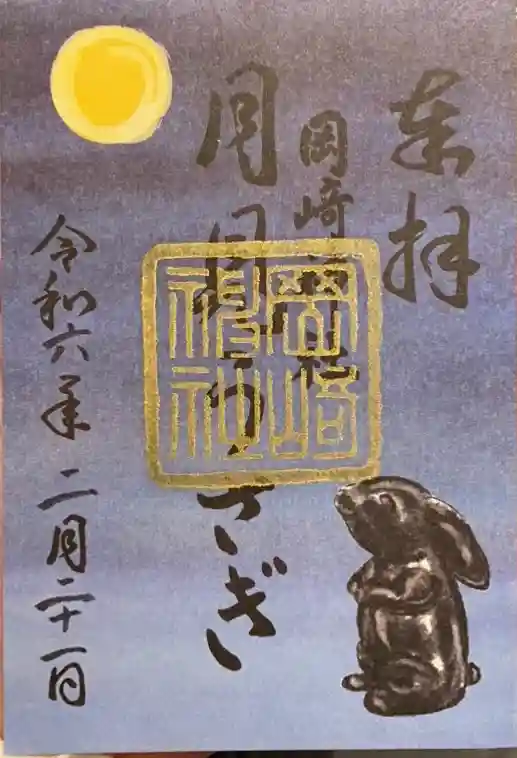 奉拝
岡崎神社
月見うさぎ
岡崎
神社
令和六年二月二十一日